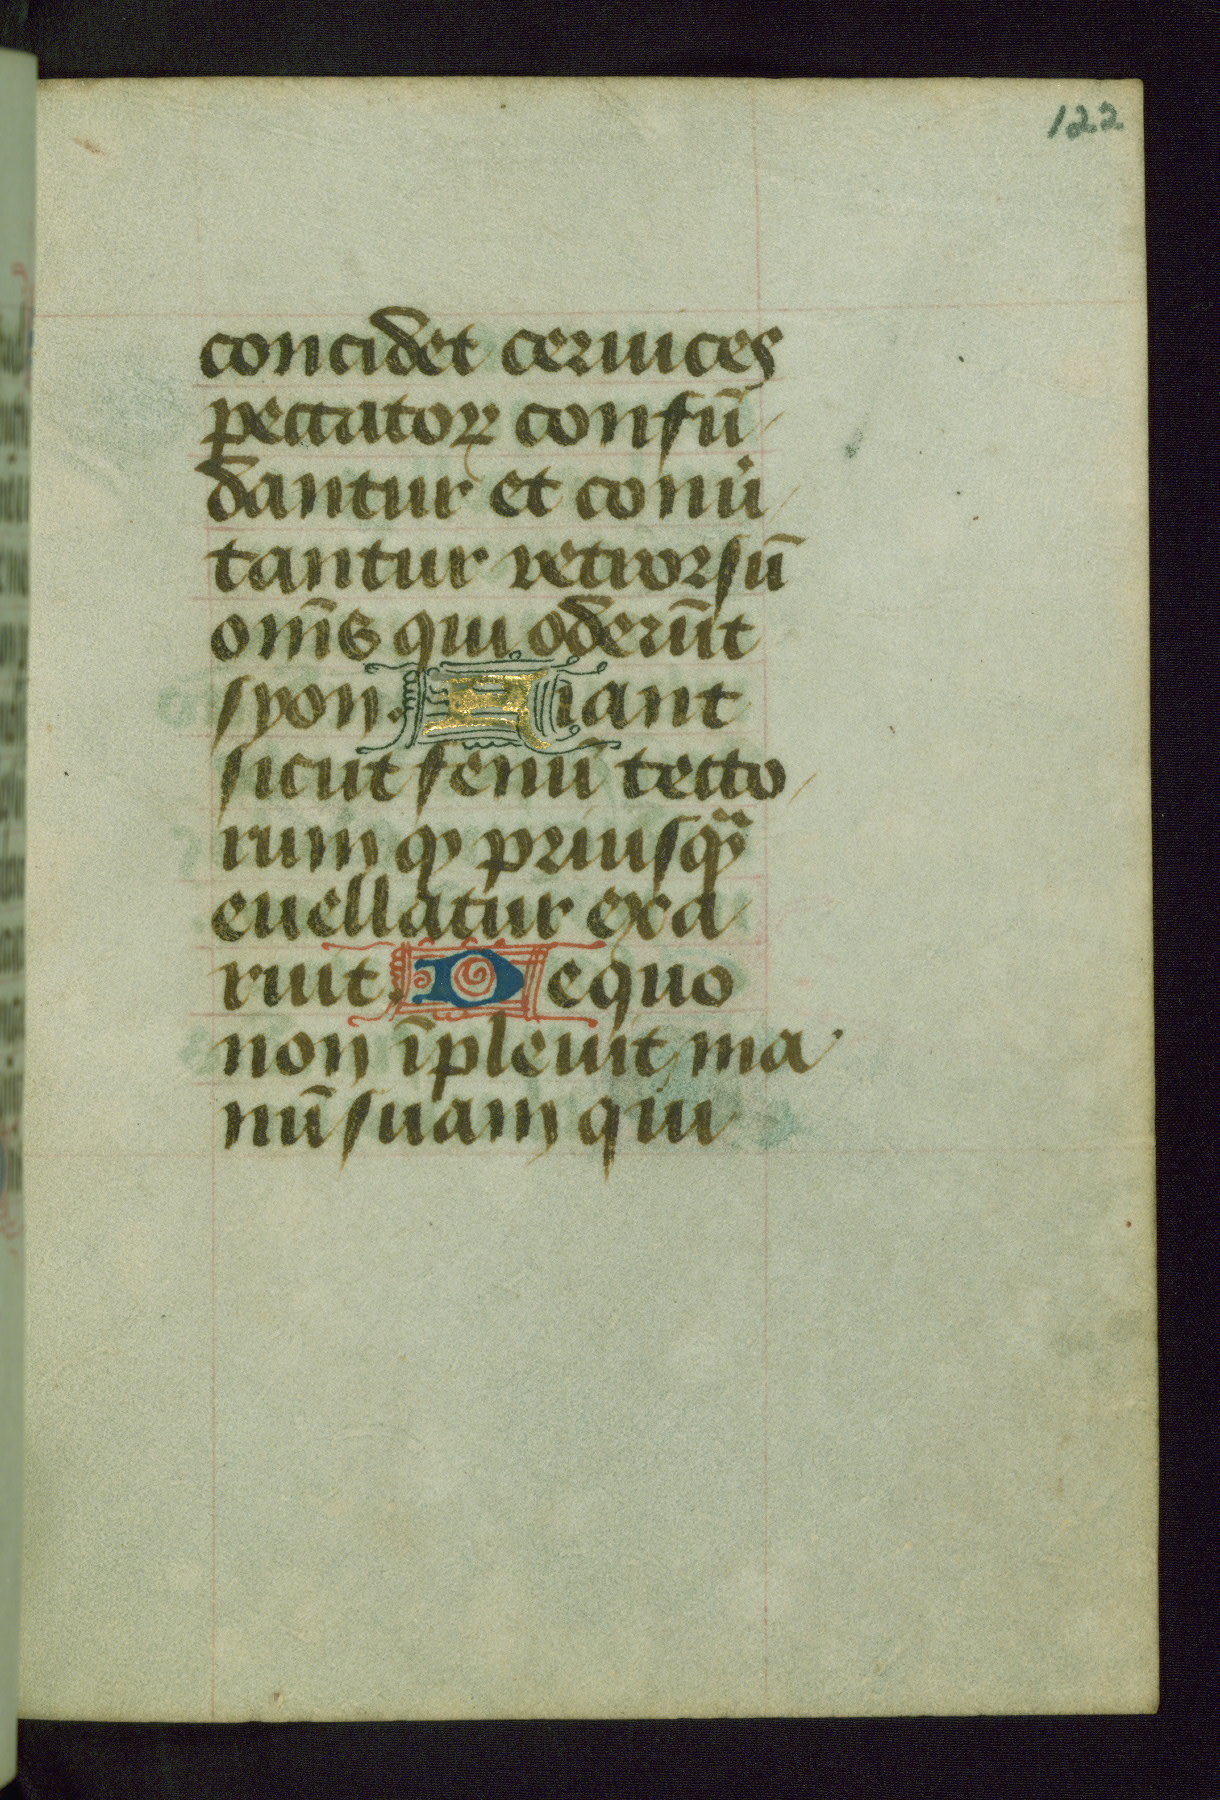 122
concidet ceruices
peccatoꝝ confū
dantur et conu̾
tantur retrorsū
om̄s qui oderūt
syon. Fiant
sicut fenū tecto
rum qͥ priusqᷓ
euellatur exa
ruit. De quo
non īpleuit ma
nū suam qui